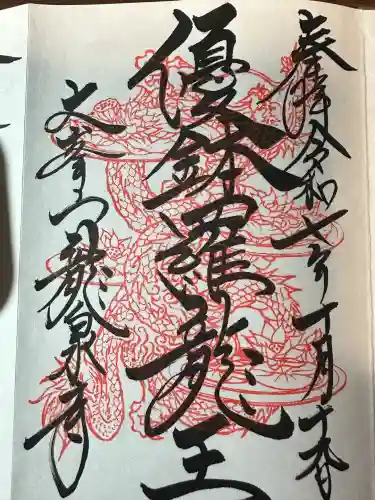 奉拝 令和七年十月十六日
優鉢羅龍王
大峯山龍泉寺